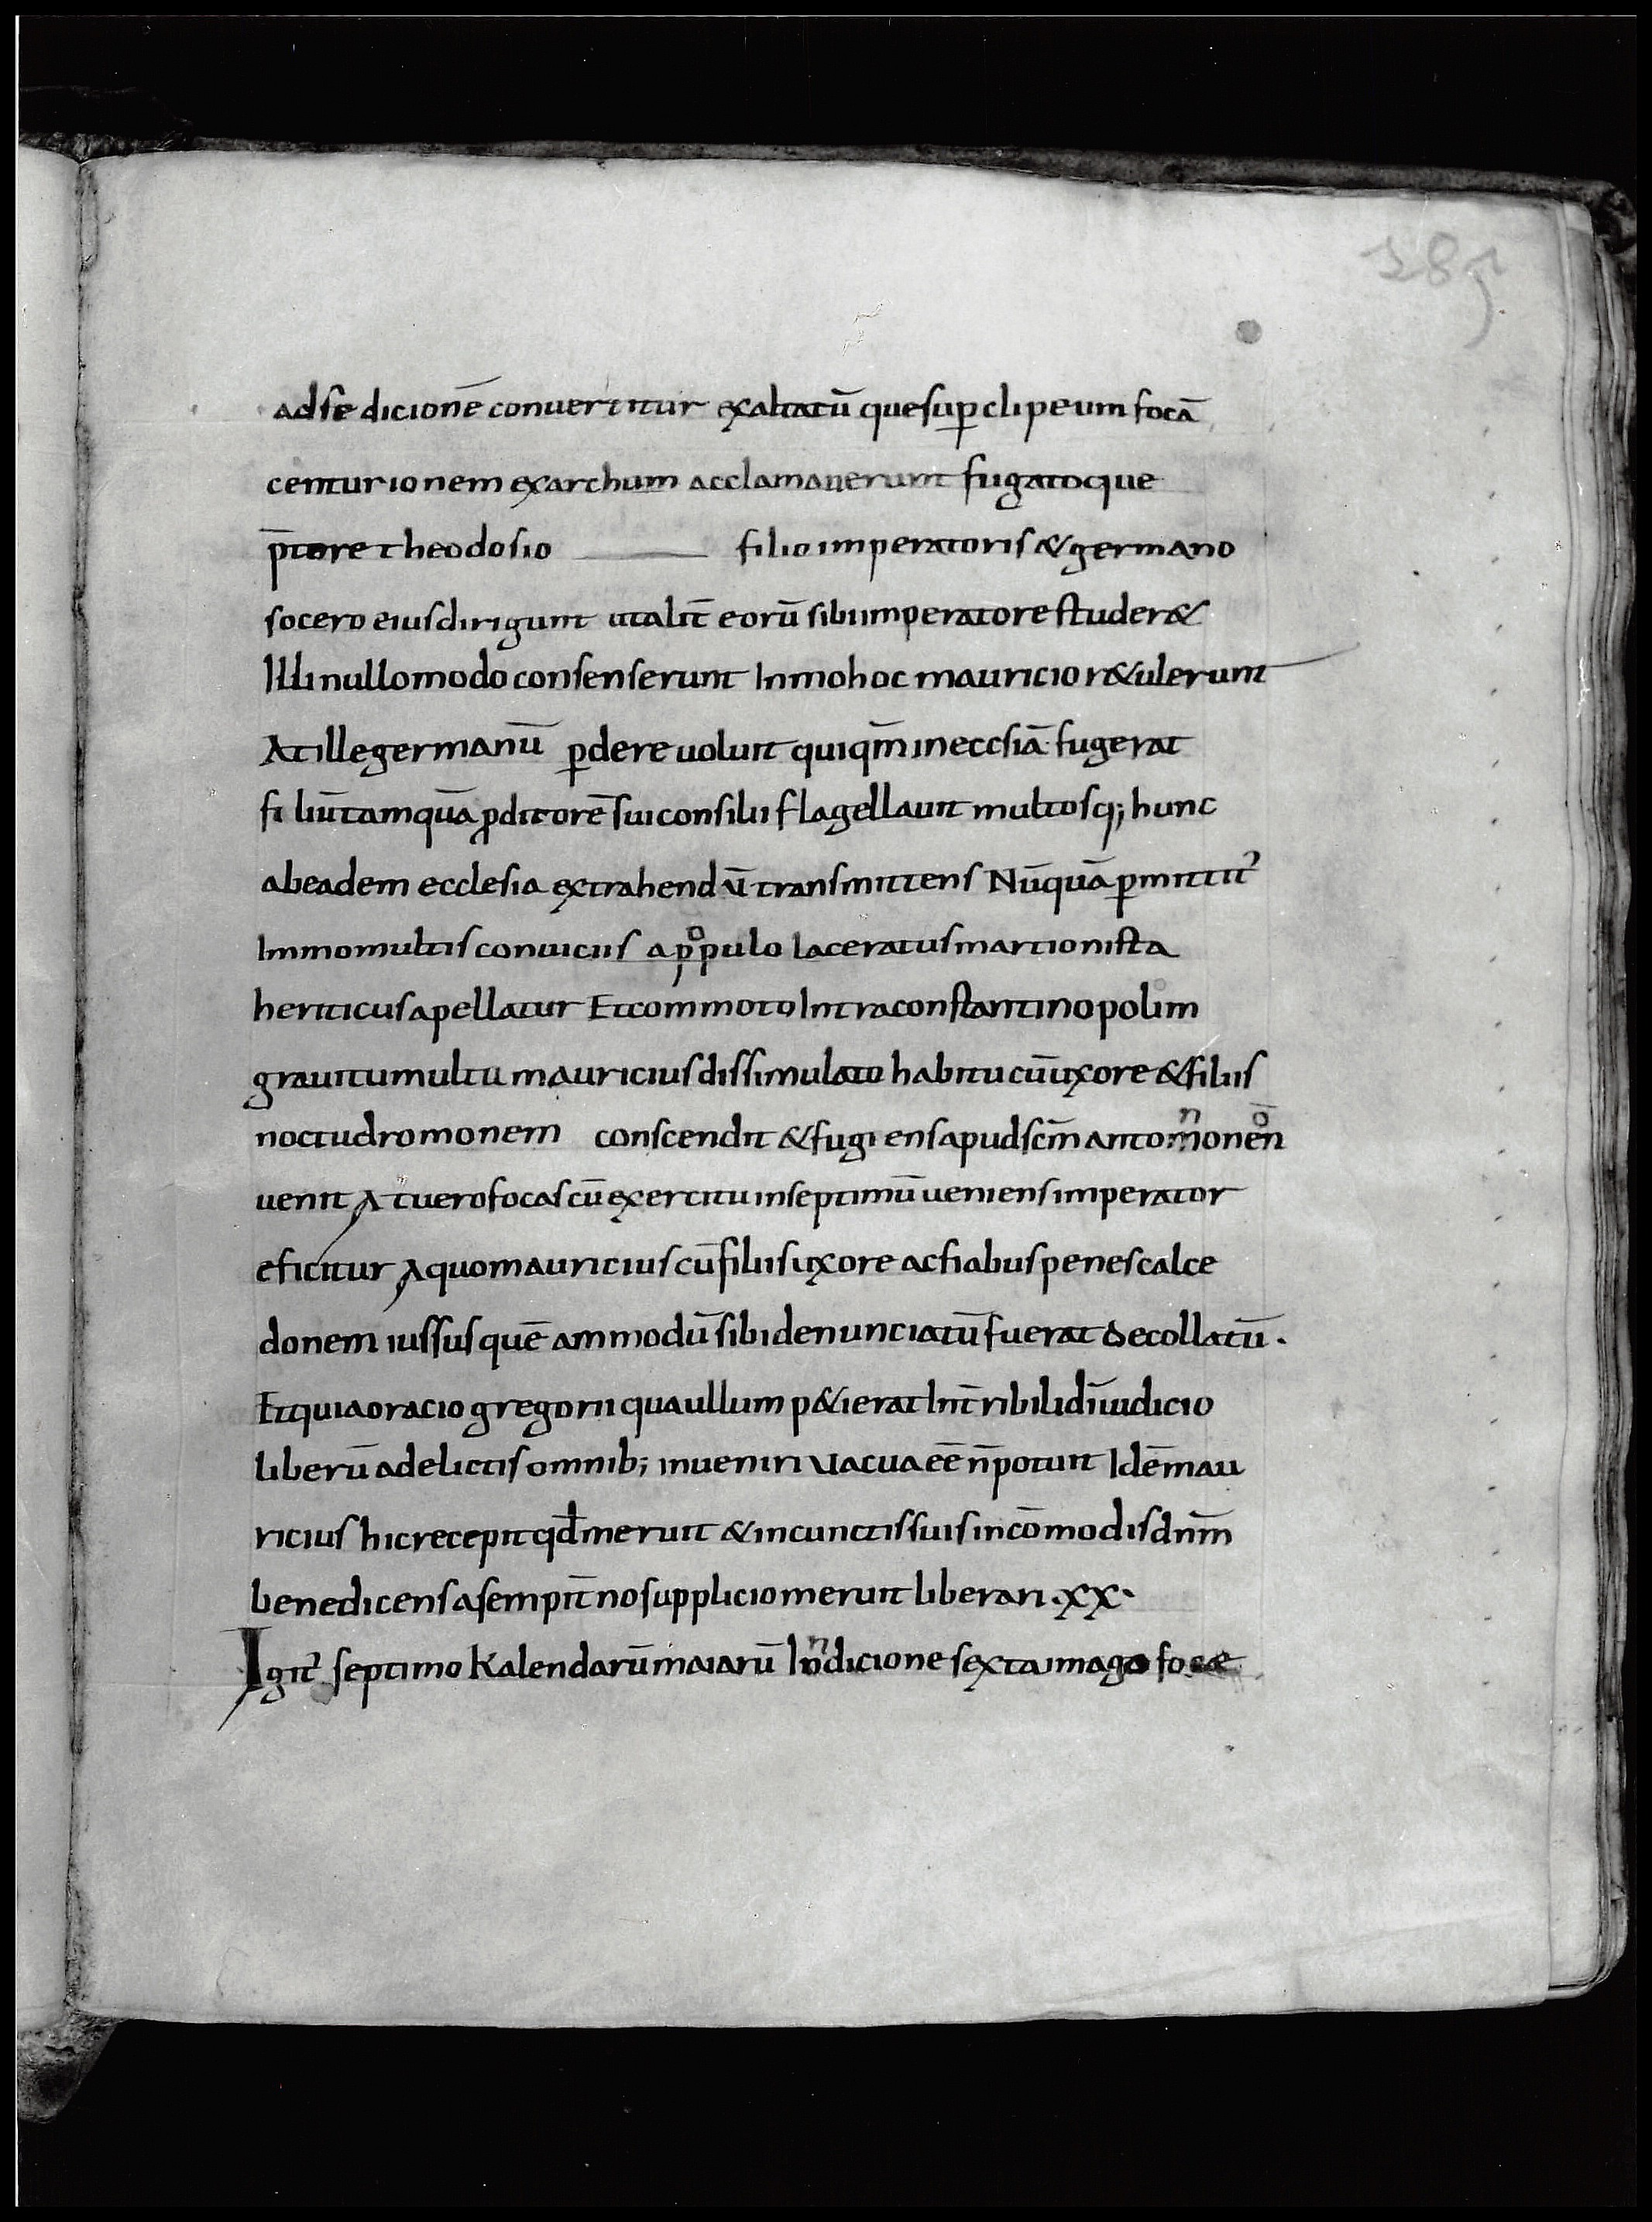 285
ad se dicionē conuertitur exaltatū que sup̱ clipeum focā
centurionem exarchum acclamauerunt fugatoque
p̄tore theodosio filio imperatoris & germano
socero eius dirigunt ut alit̄ eorū sibi imperatore studer&
Illi nullo modo consenserunt Inmo hoc mauricio r&ulerunt
At ille germanū p̱dere uoluit qui qm̄ in eccsiā fugerat
filiū tamquā p̱ditorē sui consilii flagellauit multosq; hunc
ab eadem ecclesia extrahendū transmittens Nūquā p̱mittit᾿
Immo multis conuiciis a pºpulo laceratus martionista
heriticus apellatur Et commoto Intra constantinopolim
graui tumultu mauricius dissimulato habitu cū uxore & filiis
noctu dromonem conscendit & fugiens apud scm̄ antomonen̄
uenit At uero focas cū exercitu in septimū ueniens imperator
eficitur A quo mauricius cū filiis uxore ac fiabus penes calce
donem iussus quē ammodū sibi denunciatū fuerat decollatū.
Et quia oracio gregorii qua ullum p&ierat In t̄ribili dī iudicio
liberū a delictis omnib; inueniri uacua eē n̄ potuit Idē mau
ricius hic recepit qđ meruit & in cunctis suis incōmodis dnm̄
benedicens a sempit̄no supplicio meruit liberari .xx.
Igit᾿ septimo Kalendarū maiarū Indicione sexta imago focæ